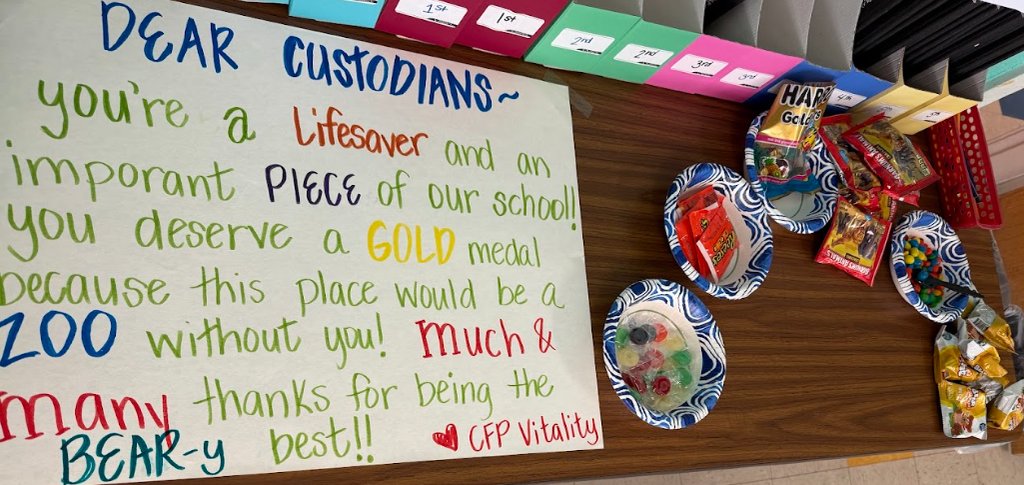 DEAR CUSTODIANS~
you're a Lifesaver and an
imporant PIECE of our school!
you deserve a GOLD medal
because this place would be a
ZOO without you! Much &
many thanks for being the
BEAR-y best!!
CFP Vitality
1st
1st
2nd
2nd
3rd
3rd
4th
5th
HAR
Gol